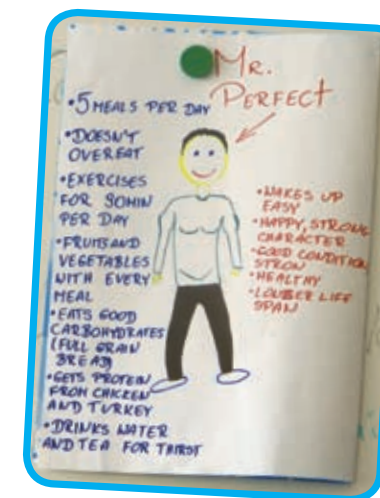 MR.
PERFECT
• 5 MEALS PER DAY
• DOESN'T
OVEREAT
• EXERCISES
FOR 90MIN
PER DAY
• FRUITS AND
VEGETABLES
WITH EVERY
MEAL
• EATS GOOD
CARBOHYDRATES
(FULL GRAIN
BREAD)
• GETS PROTEIN
FROM CHICKEN
AND TURKEY
• DRINKS WATER
AND TEA FOR THIRST
• WAKES UP
EASY
• HAPPY, STRONG
CHARACTER
• GOOD CONDITION
STRON
• HEALTHY
LIFE
SPAN